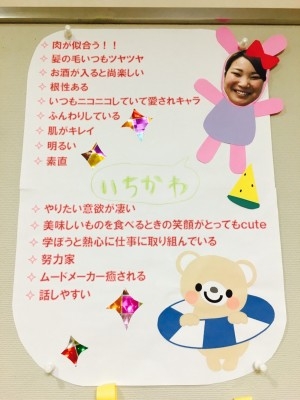 ✧ 肉が似合う！！
✧ 髪の毛いつもツヤツヤ
✧ お酒が入ると尚楽しい
✧ 根性ある
✧ いつもニコニコしていて愛されキャラ
✧ ふんわりしている
✧ 肌がキレイ
✧ 明るい
✧ 素直
いちかわ
✧ やりたい意欲が凄い
✧ 美味しいものを食べるときの笑顔がとってもcute
✧ 学ぼうと熱心に仕事に取り組んでいる
✧ 努力家
✧ ムードメーカー癒される
✧ 話しやすい